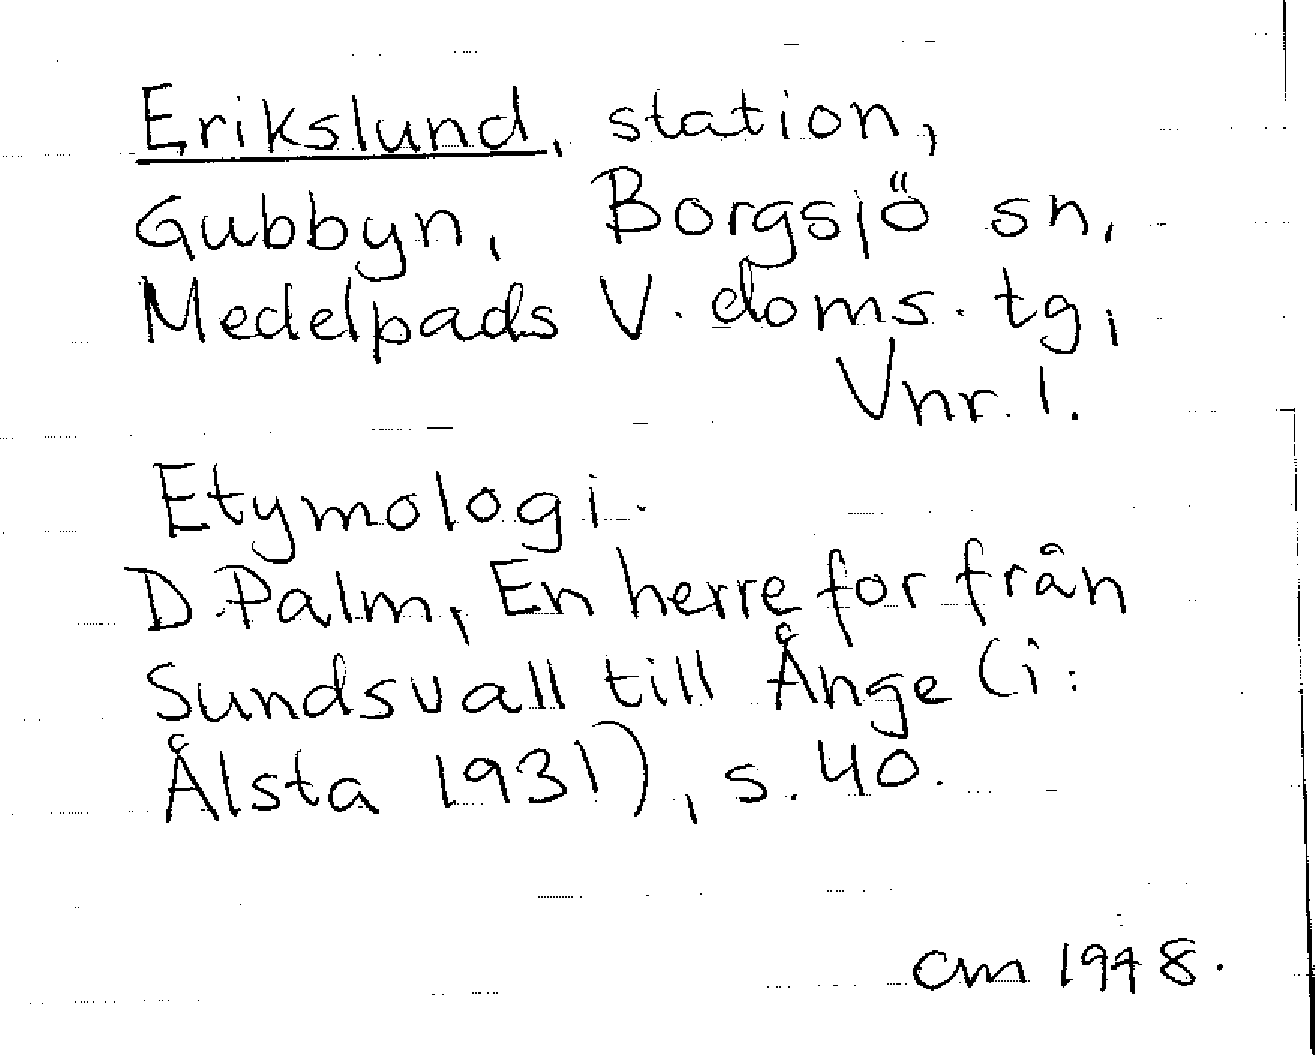 Erikslund, station,
Gubbyn, Borgsjö sn,
Medelpads V. doms. tg,
Vnr. 1.
Etymologi.
D. Palm, En herre for från
Sundsvall till Ånge (i:
Ålsta 1931), s. 40.
cm 1948.